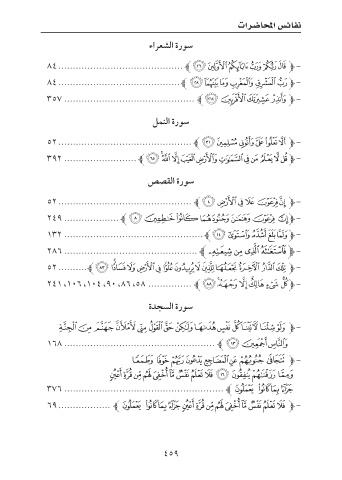 نفائس المحاضرات
سورة الشعراء
- ﴿ قَالَ رَبُّكُمْ وَرَبُّ ءَابَآئِكُمُ ٱلْأَوَّلِينَ ﴿٢٦﴾ ﴾ .......... ٨٤
- ﴿ رَبُّ ٱلْمَشْرِقِ وَٱلْمَغْرِبِ وَمَا بَيْنَهُمَآ ﴿٢٨﴾ ﴾ .......... ٨٤
- ﴿ وَأَنذِرْ عَشِيرَتَكَ ٱلْأَقْرَبِينَ ﴿٢١٤﴾ ﴾ .......... ٣٥٧
سورة النمل
- ﴿ أَلَّا تَعْلُوا۟ عَلَىَّ وَأْتُونِى مُسْلِمِينَ ﴿٣١﴾ ﴾ .......... ٥٢
- ﴿ قُل لَّا يَعْلَمُ مَن فِى ٱلسَّمَٰوَٰتِ وَٱلْأَرْضِ ٱلْغَيْبَ إِلَّا ٱللَّهُ ﴿٦٥﴾ ﴾ .......... ٣٩٢
سورة القصص
- ﴿ إِنَّ فِرْعَوْنَ عَلَا فِى ٱلْأَرْضِ ﴿٤﴾ ﴾ .......... ٥٢
- ﴿ إِنَّ فِرْعَوْنَ وَهَٰمَٰنَ وَجُنُودَهُمَا كَانُوا۟ خَٰطِـِٔينَ ﴿٨﴾ ﴾ .......... ٢٤٩
- ﴿ وَلَمَّا بَلَغَ أَشُدَّهُۥ وَٱسْتَوَىٰٓ ﴿١٤﴾ ﴾ .......... ١٣٢
- ﴿ فَٱسْتَغَٰثَهُ ٱلَّذِى مِن شِيعَتِهِۦ ﴾ .......... ٢٨٦
- ﴿ تِلْكَ ٱلدَّارُ ٱلْءَاخِرَةُ نَجْعَلُهَا لِلَّذِينَ لَا يُرِيدُونَ عُلُوًّا فِى ٱلْأَرْضِ وَلَا فَسَادًا ﴿٨٣﴾ ﴾ .......... ٥٢
- ﴿ كُلُّ شَىْءٍ هَالِكٌ إِلَّا وَجْهَهُۥ ﴿٨٨﴾ ﴾ .......... ٥٨، ٨٦، ٩٠، ١٠٤، ١٠٦، ٢٤١
سورة السجدة
- ﴿ وَلَوْ شِئْنَا لَءَاتَيْنَا كُلَّ نَفْسٍ هُدَىٰهَا وَلَٰكِنْ حَقَّ ٱلْقَوْلُ مِنِّى لَأَمْلَأَنَّ جَهَنَّمَ مِنَ ٱلْجِنَّةِ
وَٱلنَّاسِ أَجْمَعِينَ ﴿١٣﴾ ﴾ .......... ١٦٨
- ﴿ تَتَجَافَىٰ جُنُوبُهُمْ عَنِ ٱلْمَضَاجِعِ يَدْعُونَ رَبَّهُمْ خَوْفًا وَطَمَعًا
وَمِمَّا رَزَقْنَٰهُمْ يُنفِقُونَ ﴿١٦﴾ فَلَا تَعْلَمُ نَفْسٌ مَّآ أُخْفِىَ لَهُم مِّن قُرَّةِ أَعْيُنٍ
جَزَآءًۢ بِمَا كَانُوا۟ يَعْمَلُونَ ﴾ .......... ٣٧٦
- ﴿ فَلَا تَعْلَمُ نَفْسٌ مَّآ أُخْفِىَ لَهُم مِّن قُرَّةِ أَعْيُنٍ جَزَآءًۢ بِمَا كَانُوا۟ يَعْمَلُونَ ﴾ .......... ٦٩
٤٥٩